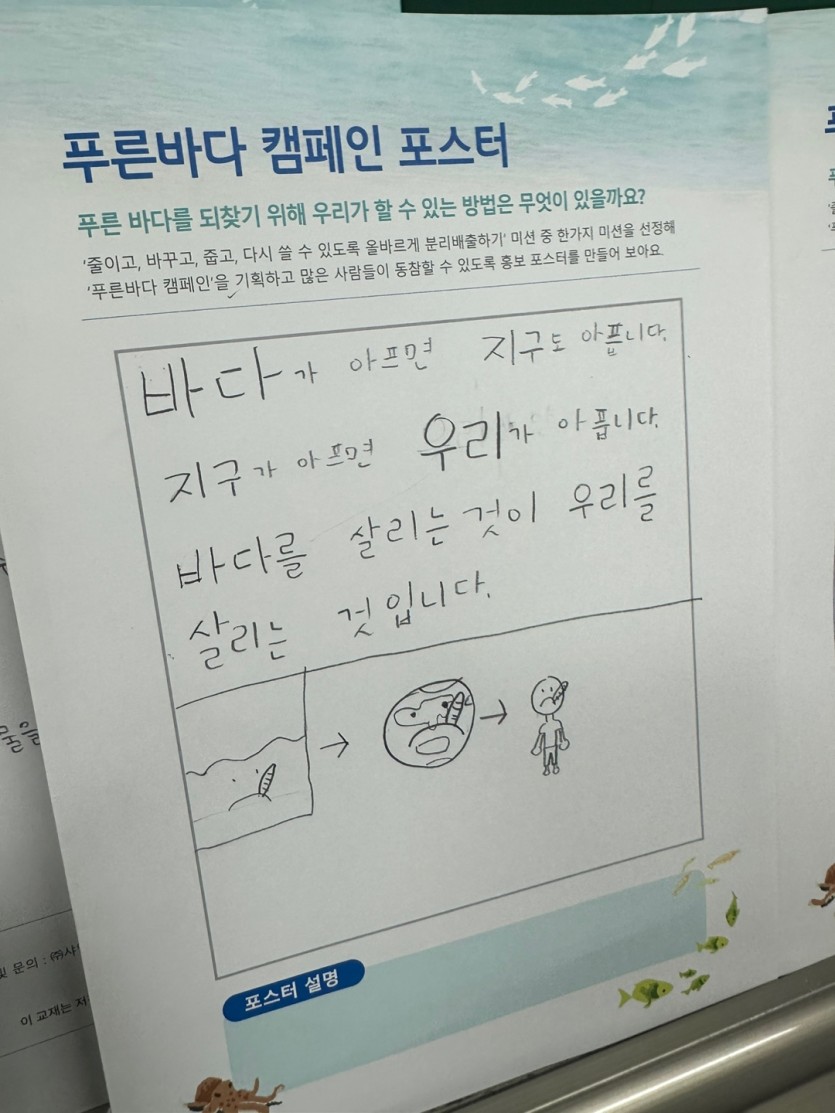 푸른바다 캠페인 포스터
푸른 바다를 되찾기 위해 우리가 할 수 있는 방법은 무엇이 있을까요?
'줄이고, 바꾸고, 줍고, 다시 쓸 수 있도록 올바르게 분리배출하기' 미션 중 한가지 미션을 선정해
'푸른바다 캠페인'을 기획하고 많은 사람들이 동참할 수 있도록 홍보 포스터를 만들어 보아요.
바다가 아프면 지구도 아픕니다.
지구가 아프면 우리가 아픕니다.
바다를 살리는 것이 우리를
살리는 것입니다.
포스터 설명
및 문의 : ㈜샤
이 교재는 저